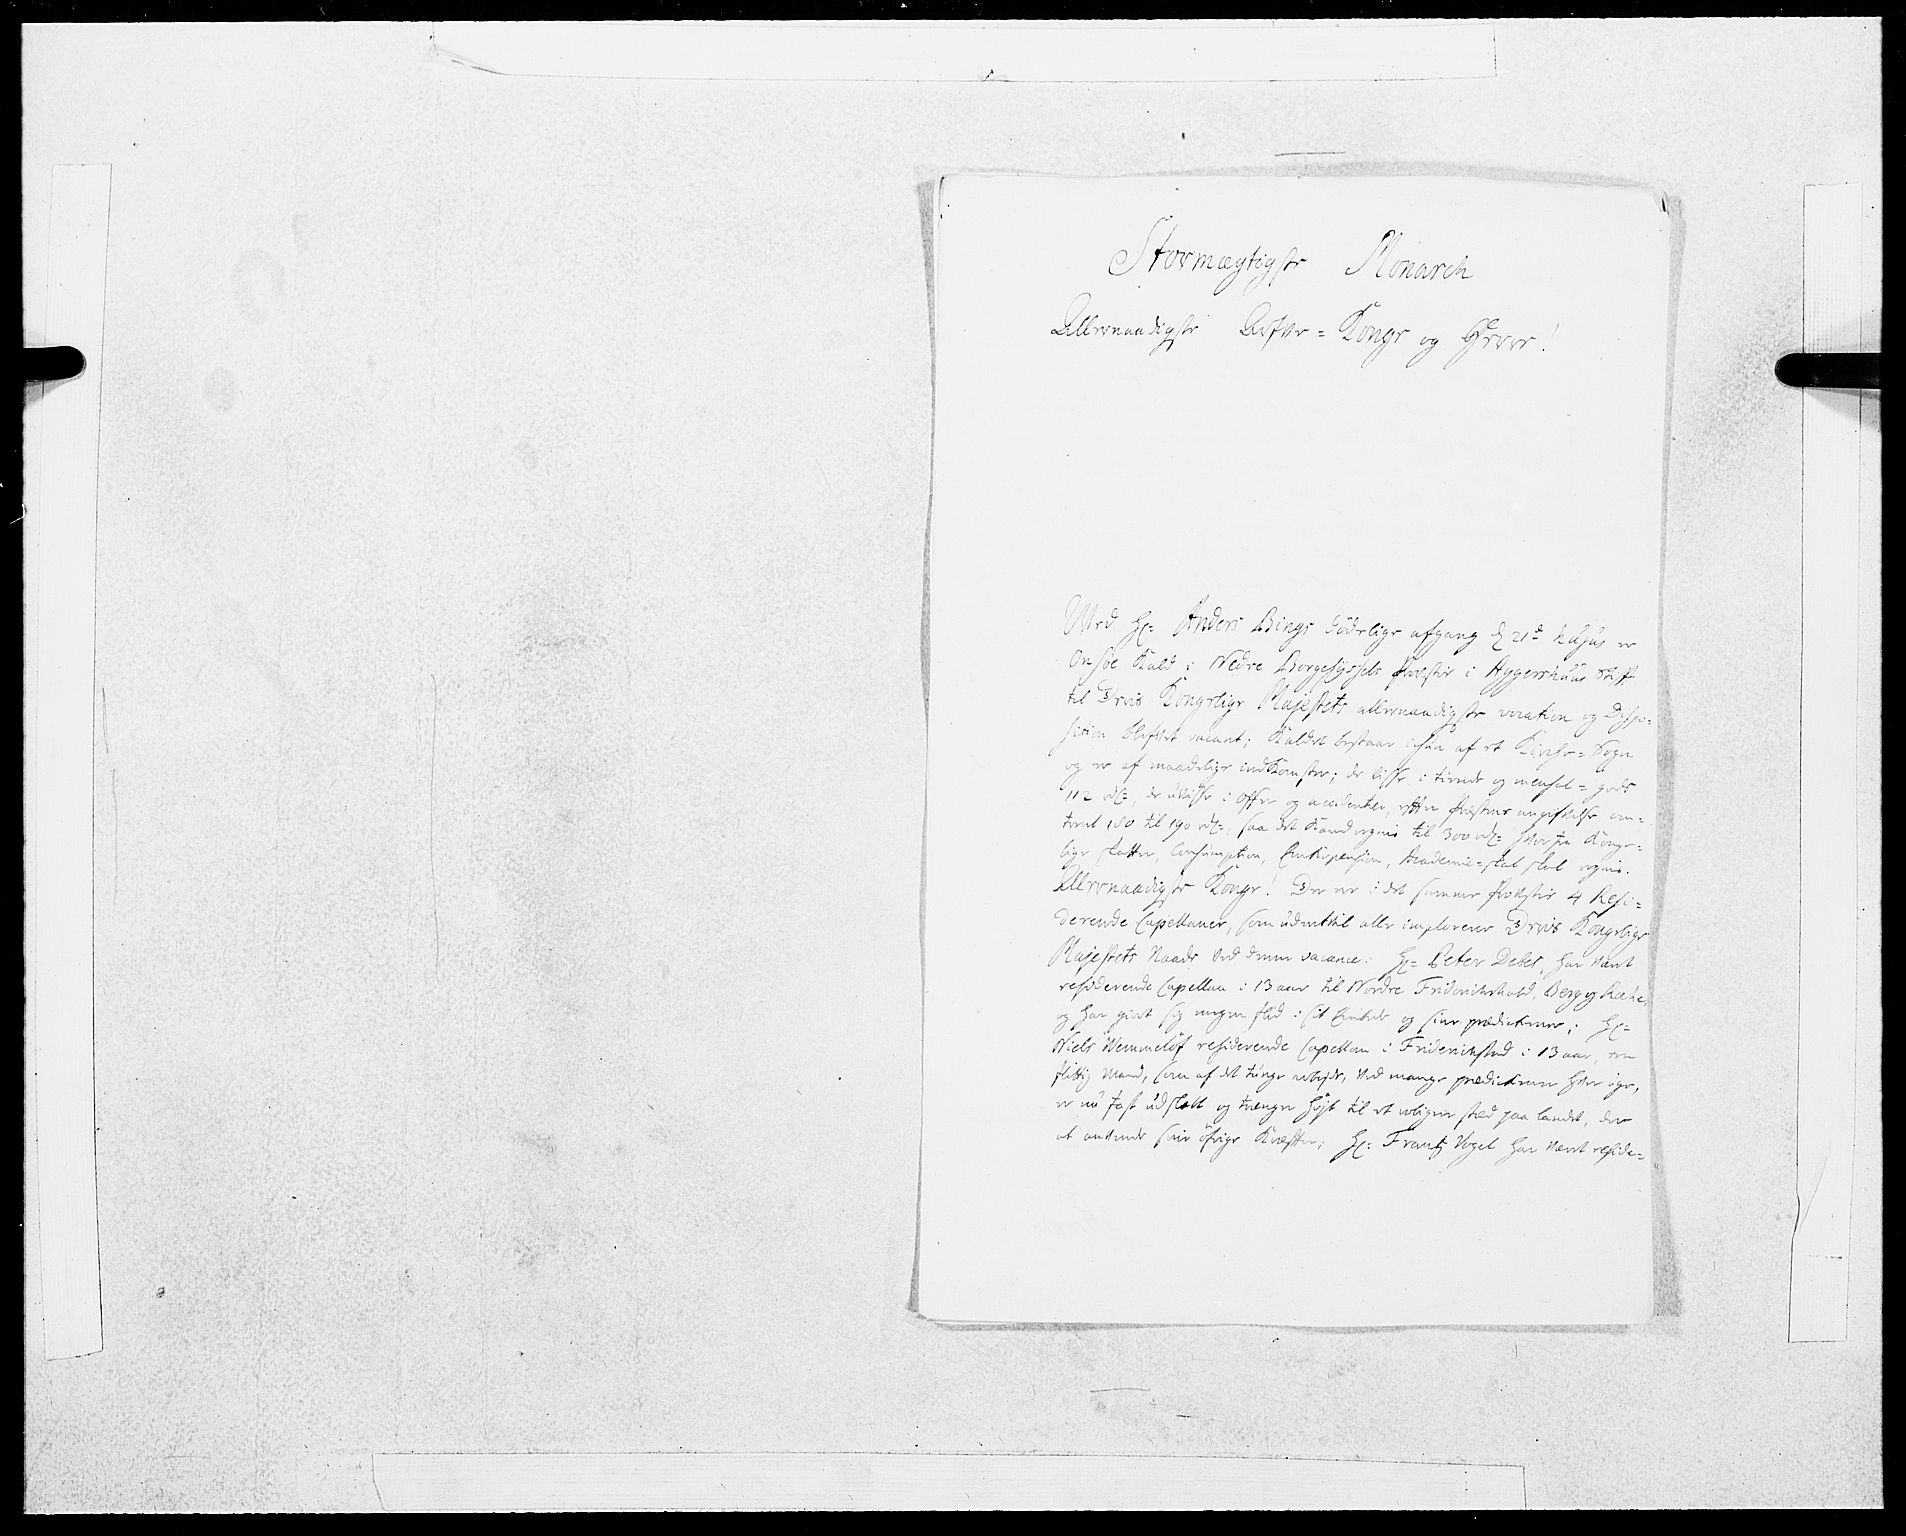 Stormægtigste Monarch
Allernaadigste Arfve-Konge og Herre!
Ved Hr: Anders Bings dödelige afgang d. 21de hujus er
Onsöe Kald i Nedre Borgesyssels Provstie i Aggershuus Stift
til Deris Kongelige Majestets allernaadigste vocation og Dispo=
sition blefvet vacant; Kaldet bestaar ickun af et Kircke-Sogn
og er af maadelige indKomster; de visse i tiende og mensal-gods
112 rdr:, de uvisse i offer og accidentier, efter Præstens angifvelse om=
trent 180 til 190 rdr:, saa det Kand regnis til 300 rdr: hvorfra Konge=
lige skatter, Consumption, Enkepension, Academie-skat skal regnis.
Allernaadigste Konge! Der er i det samme Provstie 4 Resi=
derende Capellaner, som uden tvil alle implorerer Deris Kongelige
Majestets Naade ved denne vacance: Hr: Peter Debes, har været
residerende Capellan i 13 aar til Nordre Friderichshald, Berg og Racke,
og har giort sig megen flid i sit Embede og sine prædickener; Hr:
Niels Wemmelöf residerende Capellan i Friderichstad i 13 aar, en
flittig Mand, som af det tunge arbejde, ved mange prædickener hver uge,
er nu fast udslæbt og trænger höjt til et roligere stæd paa landet, der
at anvende sine öfrige Kræfter; Hr: Frantz Vogel har været reside=